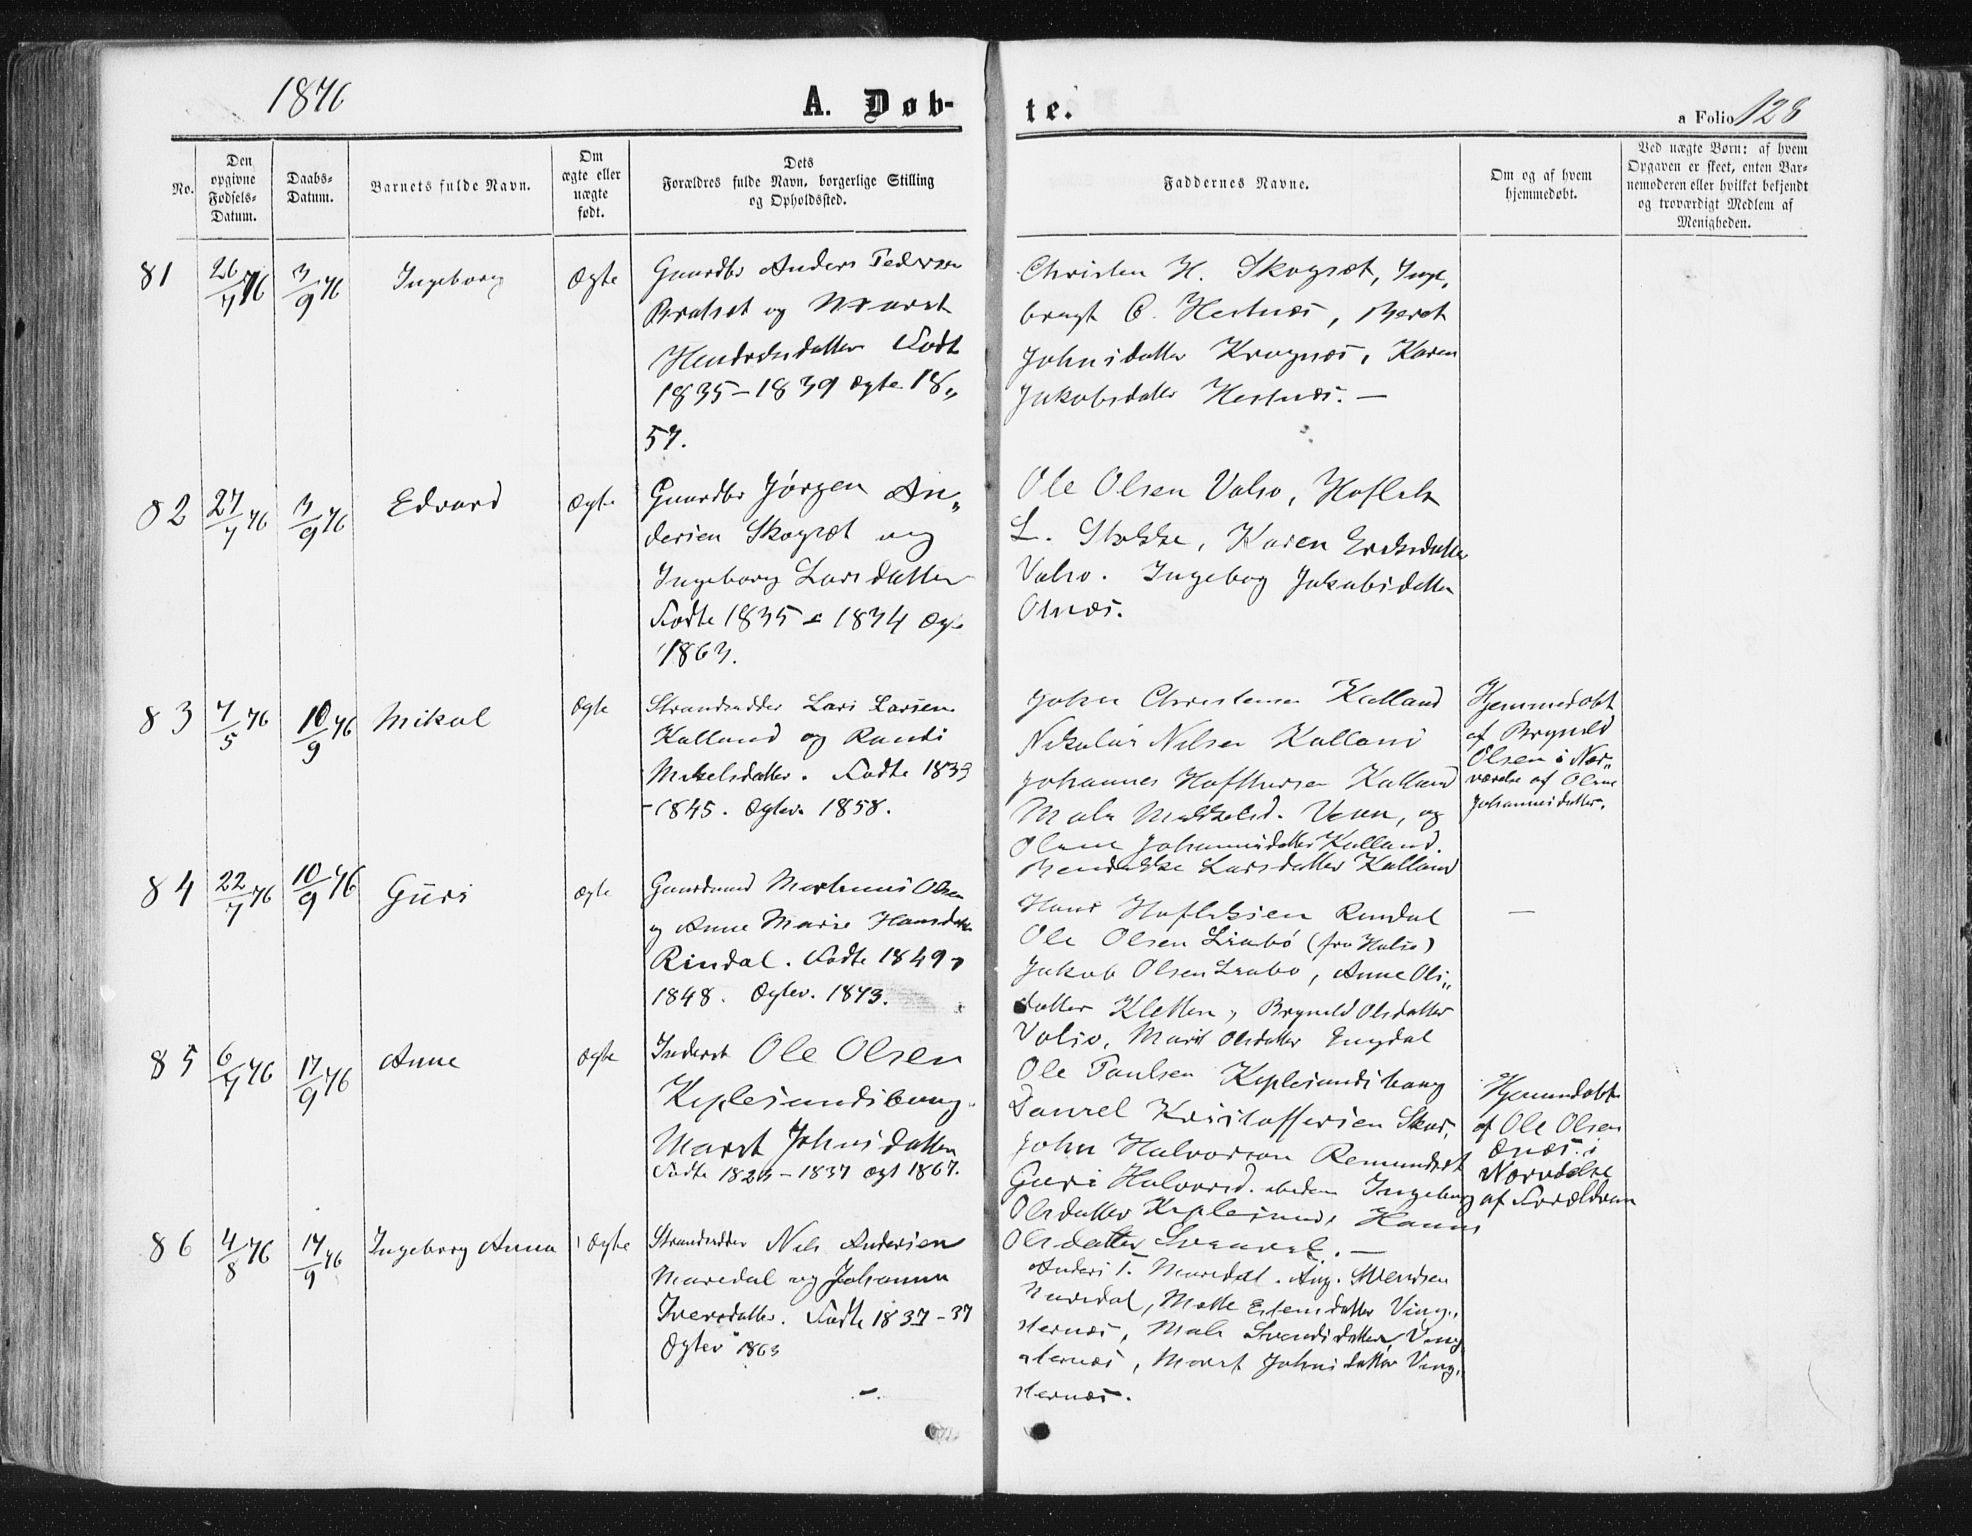 1876
A. Døb-
te.
a Folio 128
No.
Den
opgivne
Fødsels-
Datum.
Daabs-
Datum.
Barnets fulde Navn.
Om
ægte eller
uægte
født.
Dets
Forældres fulde Navn, borgerlige Stilling
og Opholdssted.
Faddernes Navne.
Om og af hvem
hjemmedøbt.
Ved uægte Børn: af hvem
Opgaven er skeet, enten Bar-
nemoderen eller hvilket bekjendt
og troværdigt Medlem af
Menigheden.
81
26/7 76
3/9 76
Ingeborg
Ægte
Gaardbr Anders Pedersen
Bratset og Marit
Hendriksdatter Født
1835-1839 Ægte 18„
57.
Christen H. Skogset, Inge„
brigt C. Hestnæs, Beret
Johnsdatter Krognæs, Karen
Jakobsdatter Hestnæs. —
82
27/7 76
3/9 76
Edvard
Ægte
Gaardbr Jørgen An„
dersen Skogset og
Ingeborg Larsdatter
Fødte 1835 - 1834 Ægt
1863.
Ole Olsen Valsø, Hoflek
L. Stokke, Karen Eriksdatter
Valsø. Ingebog Jakobsdatter
Otnæs.
83
7/5 76
10/9 76
Mikal
Ægte
Strandsidder Lars Larsen
Kalland og Randi
Mikelsdatter. Fødte 1833
-1845. Ægtev. 1858.
John Christensen Kalland
Nikolai Nilsen Kalland
Johannes Hofthersen Kalland
Male Mikkelsd. Vean, og
Oline Johannesdatter Kalland.
Bendikke Larsdatter Kalland
Hjemmedøbt
af Bryneld
Olsen i Nær„
værelse af Oline
Johannesdatter.
84
22/7 76
10/9 76
Guri
ægte
Gaardmand Mortinus Olsen
og Anne Marie Hansdatter
Rindal. Fødte 1849 &
1848. Ægtev. 1873.
Hans Hofleksen Rindal
Ole Olsen Liabø (fra Halse)
Jakob Olsen Liabø, Anne Ols„
datter Kletten, Bryneld Olsdatter
Valsø, Marit Olsdatter Engdal
—
85
6/7 76
17/9 76
Anne
ægte
Inderst Ole Olsen
Keplesundshaug.
Marit Johnsdatter
Fødte 1823-1837 Ægt 1867.
Ole Paulsen Keplesundshaug
Daniel Kristoffersen Skar,
John Halvorsen Remundset
Guri Halvorsd. ibidem Ingeborg
Olsdatter Keplesund, Hanna
Olsdatter Svanvik. —
Hjemmedøbt
af Ole Olsen
Ænæs. i
Nærværelse
af Forældrene
86
4/8 76
17/9 76
Ingeborg Anna
Ægte
Strandsidder Nils Andersen
Maredal og Johanna
Iversdatter. Fødte 1837-37
Ægtev 1863
Anders T. Maredal. Aug. Svendsen
Maredal, Mette Estensdatter Ving„
sternæs, Male Svendsdatter Ving
sternæs, Marit Johnsdatter Ving„
sternæs.